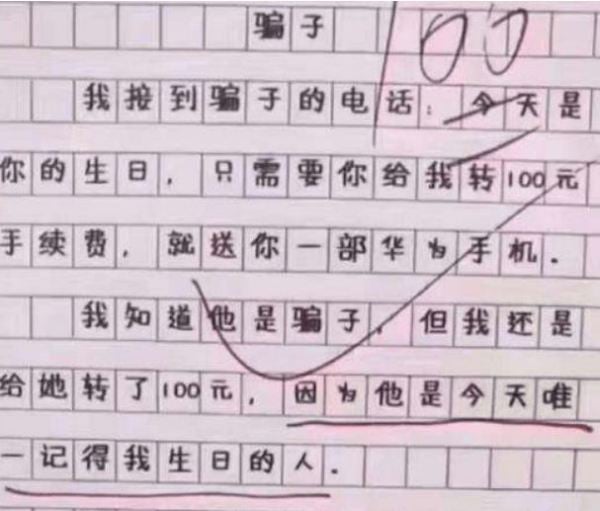 骗子
100
我接到骗子的电话：今天是
你的生日，只需要你给我转100元
手续费，就送你一部华为手机．
我知道他是骗子，但我还是
给她转了100元，因为他是今天唯
一记得我生日的人．